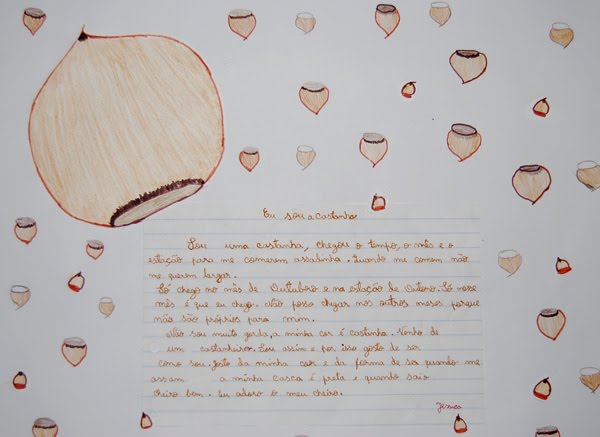 Eu sou a castanha
Sou uma castanha, chegou o tempo, o mês e o
estação para me comerem assadinha. Quando me comem não
me querem largar.
Só chego no mês de Outubro e na estação de Outono. Só nesse
mês é que eu chego. Não posso chegar nos outros meses porque
não são próprios para mim.
Não sou muito gorda, a minha cor é castanha. Venho de
um castanheiro. Sou assim e por isso gosto de ser
como sou. Gosto da minha cor e da forma de ser quando me
assam a minha casca é preta e quando saio
cheiro bem. Eu adoro o meu cheiro.
Jéssica